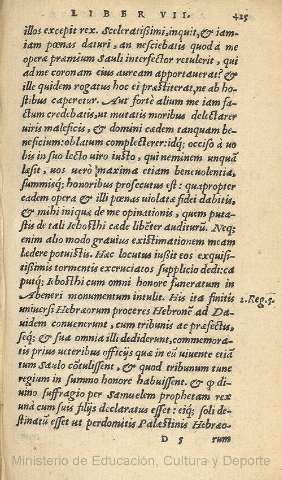 LIBER VII. 425
illos excepit rex. Sceleratißimi, inquit, & iam-
iam pœnas daturi, an nesciebatis quod à me
operæ præmium Sauli interfector retulerit, qui
ad me coronam eius auream apportauerat? &
ille quidem rogatus hoc ei præstiterat, ne ab ho-
stibus caperetur. Aut fortè alium me iam fa-
ctum credebatis, ut mutatis moribus delectarer
uiris maleficis, & domini cædem tanquam be-
neficium oblatum complecterer: idq; occiso à uo
bis in suo lecto uiro iusto, qui neminem unquã
læsit, uos uerò maxima etiam beneuolentia,
summisq; honoribus prosecutus est: quapropter
eadem opera & illi pœnas uiolatæ fidei dabitis,
& mihi iniquæ de me opinionis, quem puta-
stis de tali Iebosthi cæde libēter auditurū. Neq;
enim alio modo grauius existimationem meam
lædere potuistis. Hæc locutus iußit eos exquisi-
tißimis tormentis excruciatos supplicio dedi: ca
putq; Iebosthi cum omni honore funeratum in
Abeneri monumentum intulit. His ita finitis
uniuersi Hebræorum proceres Hebronē ad Da-
uidem conuenerunt, cum tribunis ac præfectis,
seq; & sua omnia illi dediderunt, commemora-
tis prius ueteribus officijs quæ in eū uiuente etiã
tum Saulo cōtulissent, & quod tribunum tunc
regium in summo honore habuissent, & ꝙ di-
uino suffragio per Samuelem prophetam rex
unà cum suis filijs declaratus esset: eiq; soli de-
stinatū esset ut perdomitis Palæstinis Hebræo-
2. Reg. 5.
D 5 rum
Ministerio de Educación, Cultura y Deporte